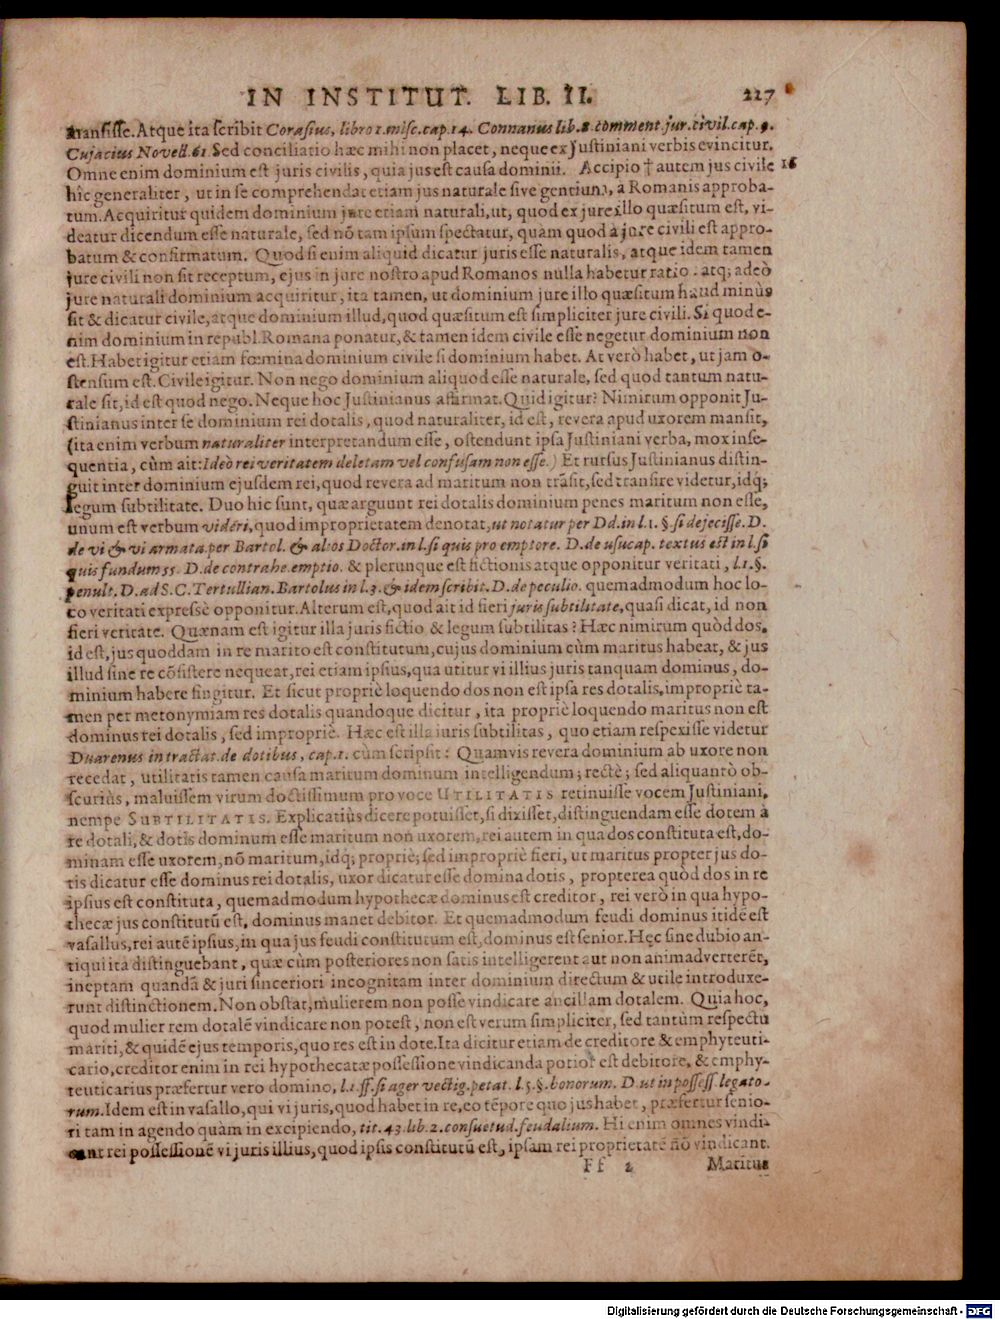 IN INSTITUT. LIB. II. 227
transisse. Atque ita scribit Corasius, libro 1. misc. cap. 14. Connanus lib. 8. comment. jur. civil. cap. 9.
Cujacius Novell. 61. Sed conciliatio hæc mihi non placet, neque ex Justiniani verbis evincitur.
Omne enim dominium est juris civilis, quia jus est causa dominii. Accipio † autem jus civile 16
hîc generaliter, ut in se comprehendat etiam jus naturale sive gentium, à Romanis approba-
tum. Acquiritur quidem dominium jure etiam naturali, ut, quod ex jure illo quæsitum est, vi-
deatur dicendum esse naturale, sed nō tam ipsum spectatur, quàm quod à jure civili est appro-
batum & confirmatum. Quod si enim aliquid dicatur juris esse naturalis, atque idem tamen
jure civili non sit receptum, ejus in jure nostro apud Romanos nulla habetur ratio. atq; adeò
jure naturali dominium acquiritur, ita tamen, ut dominium jure illo quæsitum haud minùs
sit & dicatur civile, atque dominium illud, quod quæsitum est simpliciter jure civili. Si quod e-
nim dominium in republ. Romana ponatur, & tamen idem civile esse negetur dominium non
est. Habet igitur etiam fœmina dominium civile si dominium habet. At verò habet, ut jam o-
stensum est. Civile igitur. Non nego dominium aliquod esse naturale, sed quod tantum natu-
rale sit, id est quod nego. Neque hoc Justinianus affirmat. Quid igitur? Nimirum opponit Ju-
stinianus inter se dominium rei dotalis, quod naturaliter, id est, revera apud uxorem mansit,
(ita enim verbum naturaliter interpretandum esse, ostendunt ipsa Justiniani verba, mox inse-
quentia, cùm ait: Ideò rei veritatem deletam vel confusam non esse.) Et rursus Justinianus distin-
guit inter dominium ejusdem rei, quod revera ad maritum non trāsit, sed transire videtur, idq;
legum subtilitate. Duo hic sunt, quæ arguunt rei dotalis dominium penes maritum non esse,
unum est verbum vidéri, quod improprietatem denotat, ut notatur per Dd. in l. 1. §. si dejecisse. D.
de vi & vi armata. per Bartol. & alios Doctor. in l. si quis pro emptore. D. de usucap. textus est in l. si
quis fundum 55. D. de contrahe. emptio. & plerunque est fictionis atque opponitur veritati, l. 1. §.
penult. D. ad S. C. Tertullian. Bartolus in l. 3. & idem scribit. D. de peculio. quemadmodum hoc lo-
co veritati expressè opponitur. Alterum est, quod ait id fieri juris subtilitate, quasi dicat, id non
fieri veritate. Quænam est igitur illa juris fictio & legum subtilitas? Hæc nimirum quòd dos,
id est, jus quoddam in re marito est constitutum, cujus dominium cùm maritus habeat, & jus
illud sine re cōsistere nequeat, rei etiam ipsius, qua utitur vi illius juris tanquam dominus, do-
minium habere fingitur. Et sicut propriè loquendo dos non est ipsa res dotalis, impropriè ta-
men per metonymiam res dotalis quandoque dicitur, ita propriè loquendo maritus non est
dominus rei dotalis, sed impropriè. Hæc est illa iuris subtilitas, quo etiam respexisse videtur
Duarenus in tractat. de dotibus, cap. 1. cùm scripsit: Quamvis revera dominium ab uxore non
recedat, utilitatis tamen causa maritum dominum intelligendum; rectè; sed aliquantò ob-
scuriùs, maluissem virum doctissimum pro voce UTILITATIS retinuisse vocem Justiniani,
nempe SUBTILITATIS. Explicatiùs dicere potuisset, si dixisset, distinguendam esse dotem à
re dotali, & dotis dominum esse maritum non uxorem, rei autem in qua dos constituta est, do-
minam esse uxorem, nō maritum, idq; propriè; sed impropriè fieri, ut maritus propter jus do-
tis dicatur esse dominus rei dotalis, uxor dicatur esse domina dotis, propterea quòd dos in re
ipsius est constituta, quemadmodum hypothecæ dominus est creditor, rei verò in qua hypo-
thecæ jus constitutū est, dominus manet debitor. Et quemadmodum feudi dominus itidē est
vasallus, rei autē ipsius, in qua jus feudi constitutum est, dominus est senior. Hęc sine dubio an-
tiqui ita distinguebant, quæ cùm posteriores non satis intelligerent aut non animadverterēt,
ineptam quandā & juri sinceriori incognitam inter dominium directum & utile introduxe-
runt distinctionem. Non obstat, mulierem non posse vindicare ancillam dotalem. Quia hoc,
quod mulier rem dotalē vindicare non potest, non est verum simpliciter, sed tantùm respectu
mariti, & quidē ejus temporis, quo res est in dote. Ita dicitur etiam de creditore & emphyteuti-
cario, creditor enim in rei hypothecatæ possessione vindicanda potior est debitore, & emphy-
teuticarius præfertur vero domino, l. 1. ff. si ager vectig. petat. l. 5. §. bonorum. D. ut in possess. legato-
rum. Idem est in vasallo, qui vi juris, quod habet in re, eo tēpore quo jus habet, præfertur senio-
ri tam in agendo quàm in excipiendo, tit. 43. lib. 2. consuetud. feudalium. Hi enim omnes vindi-
cant rei possessionē vi juris illius, quod ipsis constitutū est, ipsam rei proprietatē nō vindicant.
Ff 2 Maritus
Digitalisierung gefördert durch die Deutsche Forschungsgemeinschaft - DFG